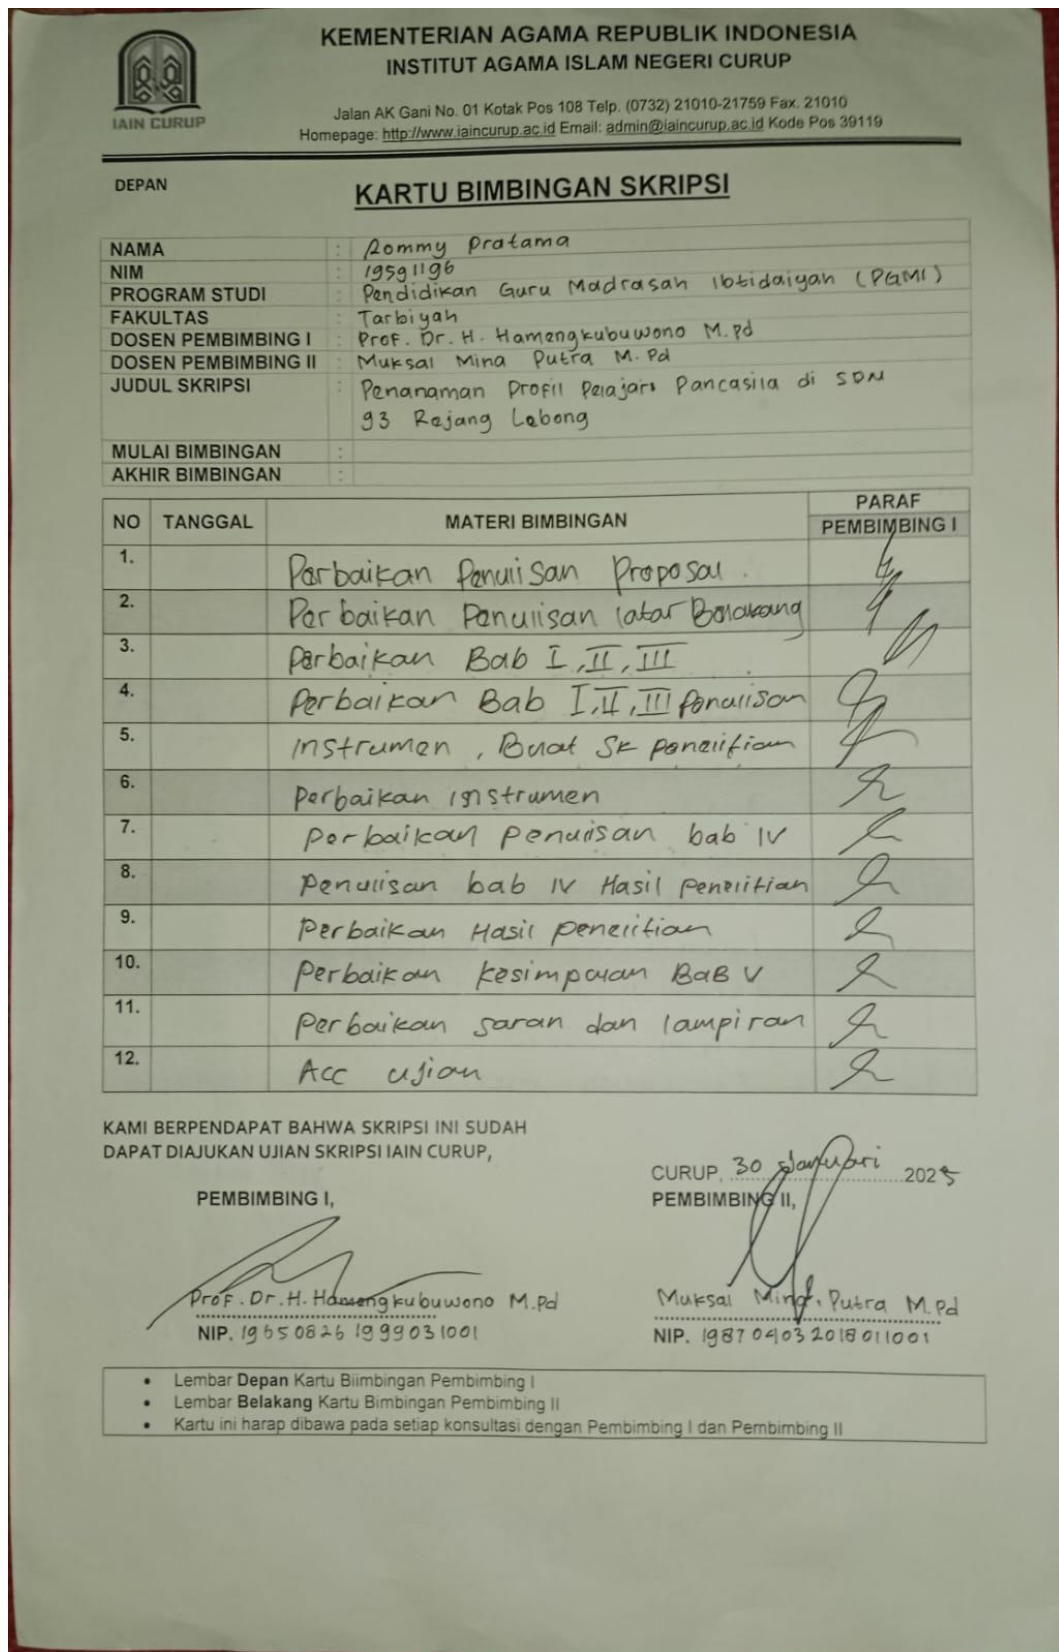 KEMENTERIAN AGAMA REPUBLIK INDONESIA
INSTITUT AGAMA ISLAM NEGERI CURUP
IAIN CURUP
Jalan AK Gani No. 01 Kotak Pos 108 Telp. (0732) 21010-21759 Fax. 21010
Homepage: http://www.iaincurup.ac.id Email: admin@iaincurup.ac.id Kode Pos 39119
DEPAN
KARTU BIMBINGAN SKRIPSI
NAMA : Rommy Pratama
NIM : 19591196
PROGRAM STUDI : Pendidikan Guru Madrasah Ibtidaiyah (PGMI)
FAKULTAS : Tarbiyah
DOSEN PEMBIMBING I : Prof. Dr. H. Hamengkubuwono M.Pd
DOSEN PEMBIMBING II : Muksal Mina Putra M.Pd
JUDUL SKRIPSI : Penanaman Profil Pelajar Pancasila di SDN
93 Rejang Lebong
MULAI BIMBINGAN :
AKHIR BIMBINGAN :
NO TANGGAL MATERI BIMBINGAN PARAF
PEMBIMBING I
1. Perbaikan Penulisan Proposal.
2. Perbaikan Penulisan latar Belakang
3. Perbaikan Bab I, II, III
4. Perbaikan Bab I, II, III Penulisan
5. instrumen, Buat SK penelitian
6. perbaikan instrumen
7. perbaikan penulisan bab IV
8. Penulisan bab IV Hasil penelitian
9. Perbaikan Hasil penelitian
10. Perbaikan kesimpulan BaB V
11. Perbaikan saran dan lampiran
12. Acc ujian
KAMI BERPENDAPAT BAHWA SKRIPSI INI SUDAH
DAPAT DIAJUKAN UJIAN SKRIPSI IAIN CURUP,
CURUP, 30 Januari 2025
PEMBIMBING I, PEMBIMBING II,
Prof. Dr. H. Hamengkubuwono M.Pd Muksal Mina Putra M.Pd
NIP. 19650826 199903 1001 NIP. 19870403 2018 011001
• Lembar Depan Kartu Biimbingan Pembimbing I
• Lembar Belakang Kartu Bimbingan Pembimbing II
• Kartu ini harap dibawa pada setiap konsultasi dengan Pembimbing I dan Pembimbing II